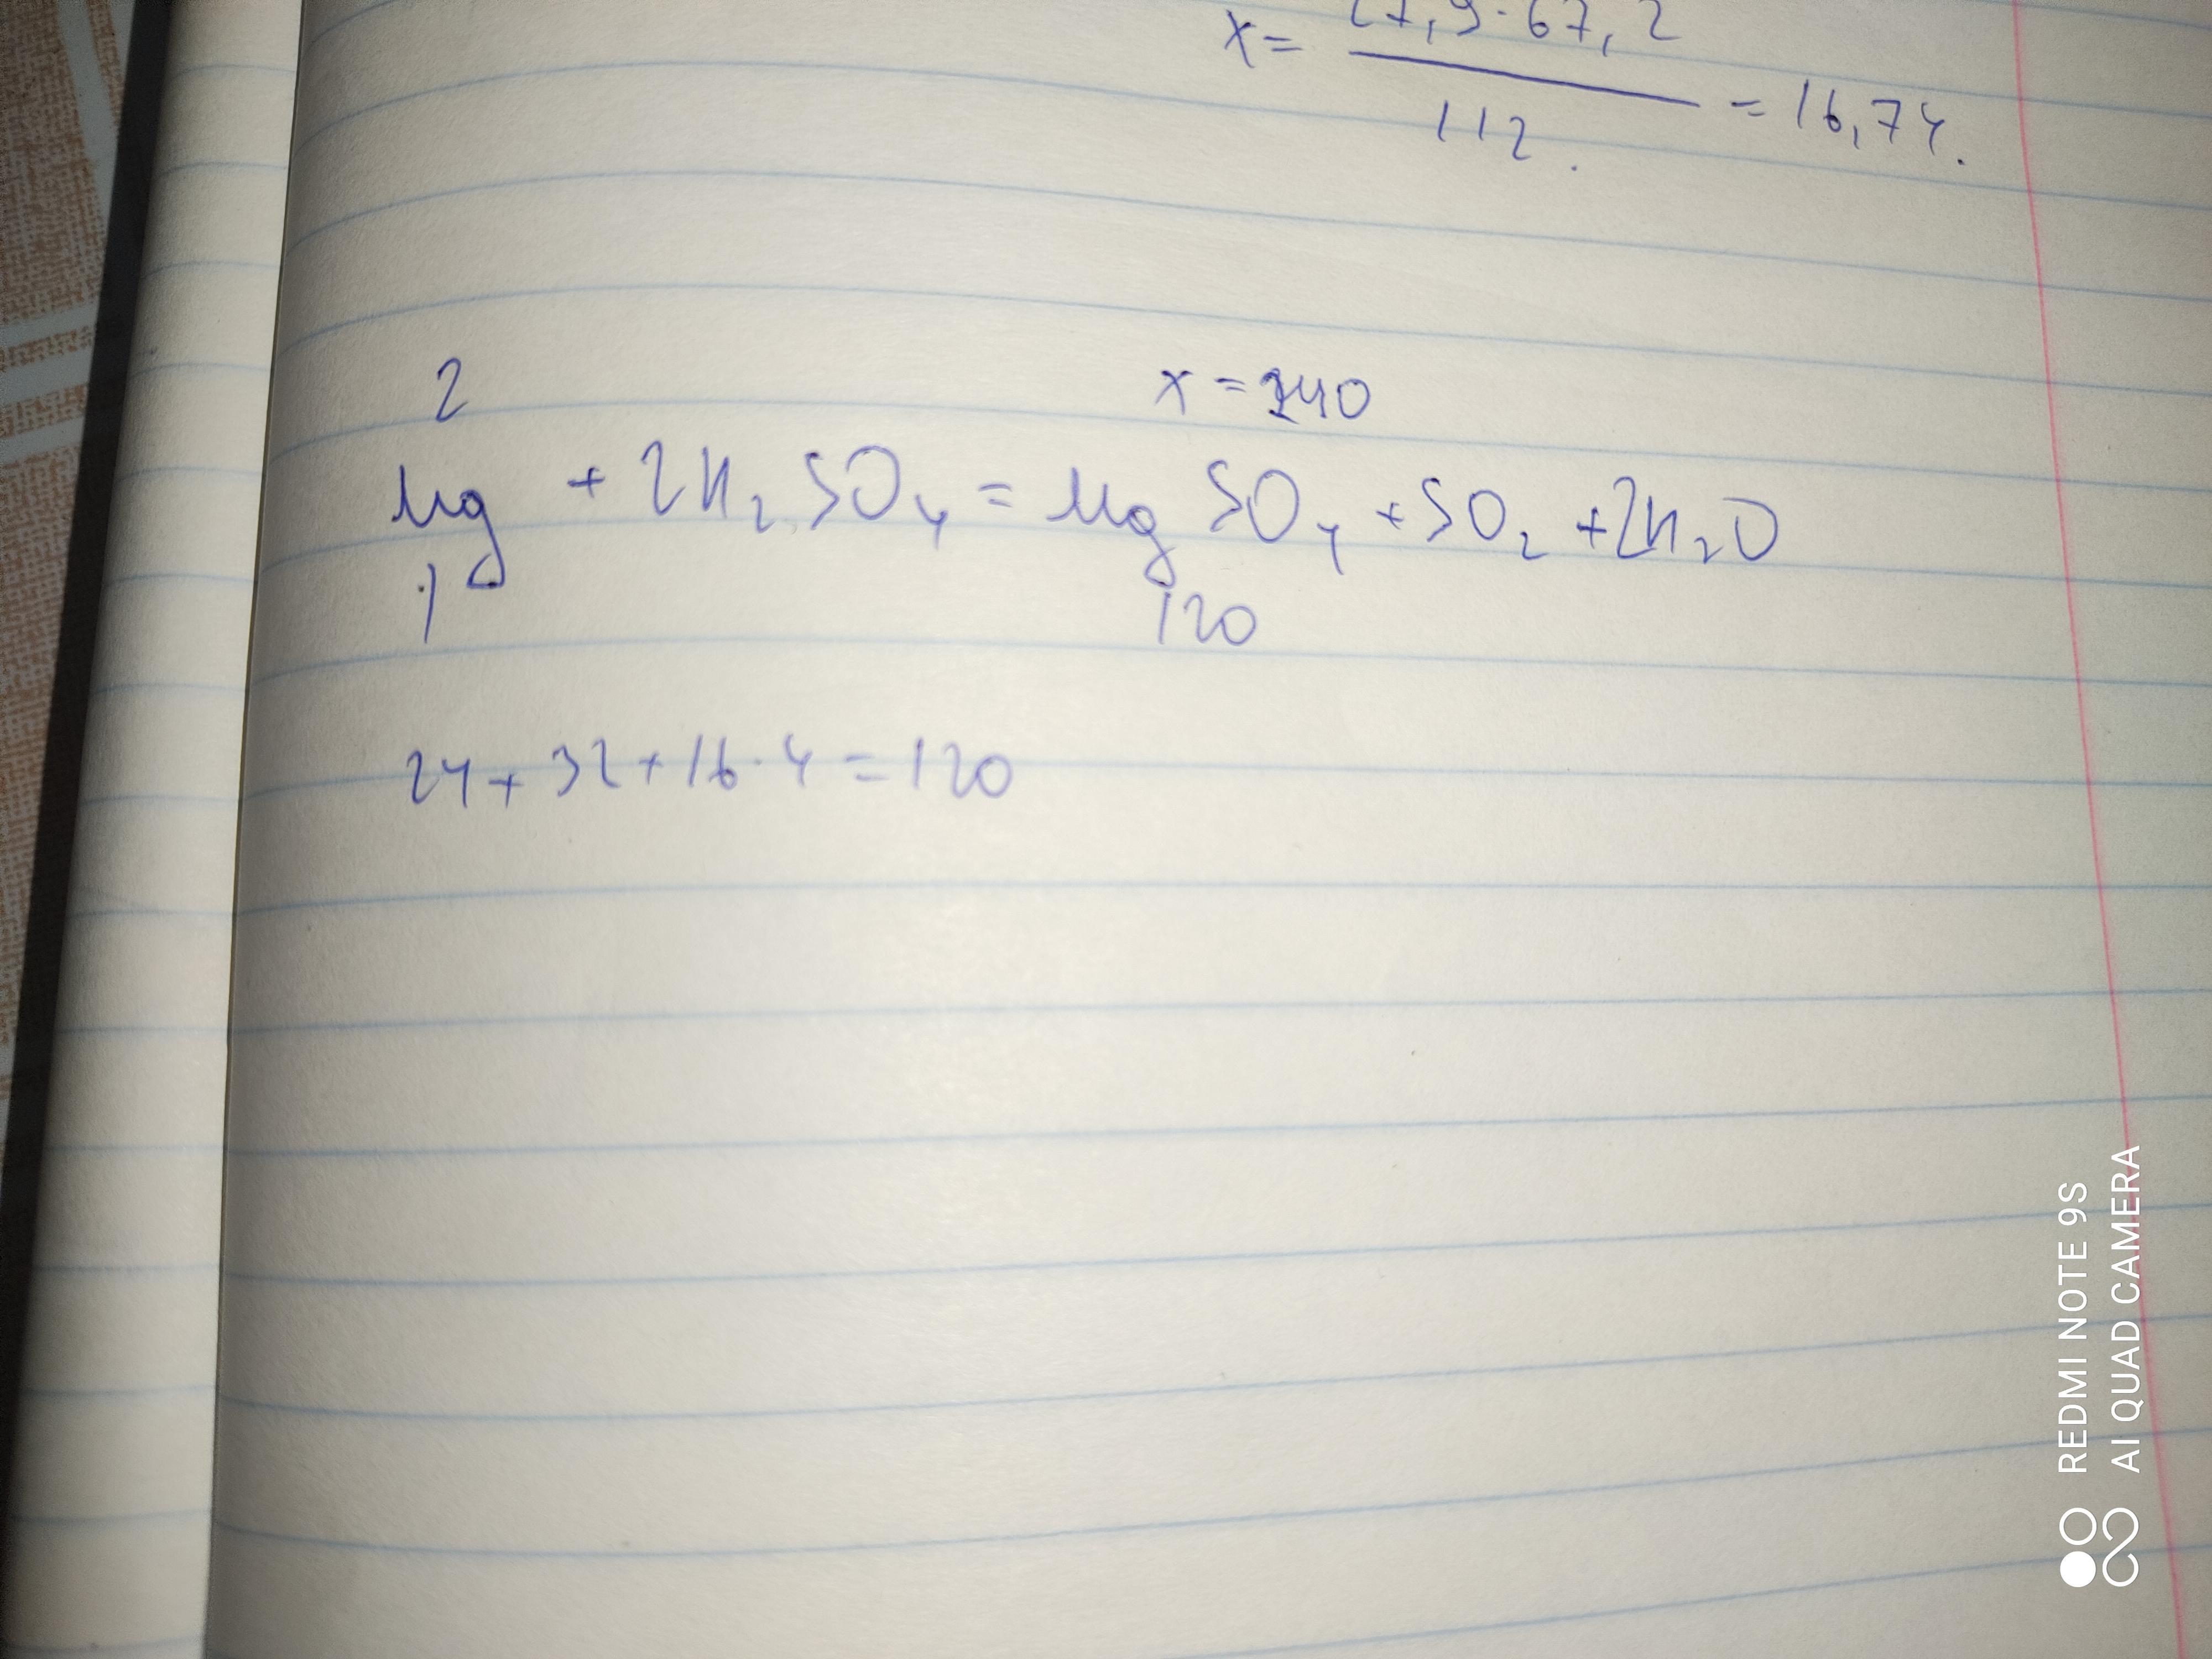 x = 27,9 · 67,2 / 112. = 16,74.
2 x = 240
Mg + 2H₂SO₄ = MgSO₄ + SO₂ + 2H₂O
1 120
24 + 32 + 16 · 4 = 120
REDMI NOTE 9S
AI QUAD CAMERA